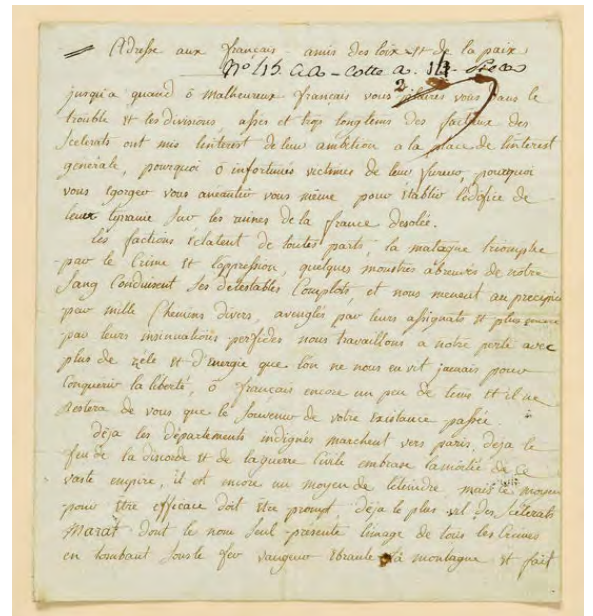 Adresse aux français amis des loix et de la paix
No 415. cote 2
jusqu'a quand ô malheureux français vous plairés vous dans le
trouble et les divisions assés et trop longtems des factieux des
scelerats ont mis linterest de leur ambition a la place de linterest
generale, pourquoi ô infortunés victimes de leur fureur, pourquoi
vous egorger vous aneantir vous même pour etablir ledifice de
leur tyranie sur les ruines de la france desolée.
les factions eclatent de toutes parts, la montagne triomphe
par le crime et loppression, quelques monstres abreuvés de notre
sang conduisent ses detestables complots, et nous menent au precipice
par mille chemins divers, aveuglés par leurs assignats et plus encore
par leurs insinuations perfides nous travaillons a notre perte avec
plus de zèle et d'energie que lon ne nous en vit jamais pour
conquerir la liberté, ô français encore un peu de tems et il ne
restera de vous que le souvenir de votre existance passée.
deja les departements indignés marchent vers paris, deja le
feu de la discorde et de la guerre civile embrase la moitié de ce
vaste empire, il est encore un moyen de leteindre mais ce moyen
pour être efficace doit être prompt. deja le plus vil des scelerats
Marat dont le nom seul presente limage de tous les crimes
en tombant sous le fer vangeur ebranle la montagne et fait